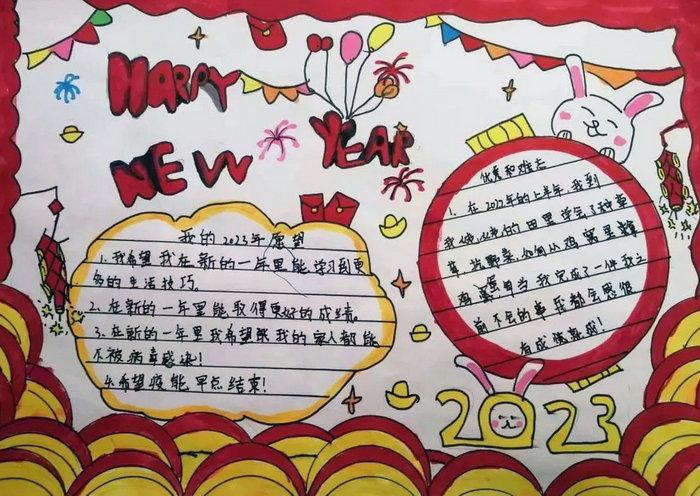 HAPPY
NEW
YEAR
我的2023年愿望
1.我希望我在新的一年里能学习到更
多的生活技巧。
2.在新的一年里能取得更好的成绩。
3.在新的一年里我希望跟我的家人都能
不被病毒感染！
4.希望疫能早点结束！
优美和难忘
1.在2022年的上半年,我到
我的日里学会了种草
草、找野菜、如何从鸡窝里
当我完成了一件我之
前不会的事我都会感很
有成就感！
2023